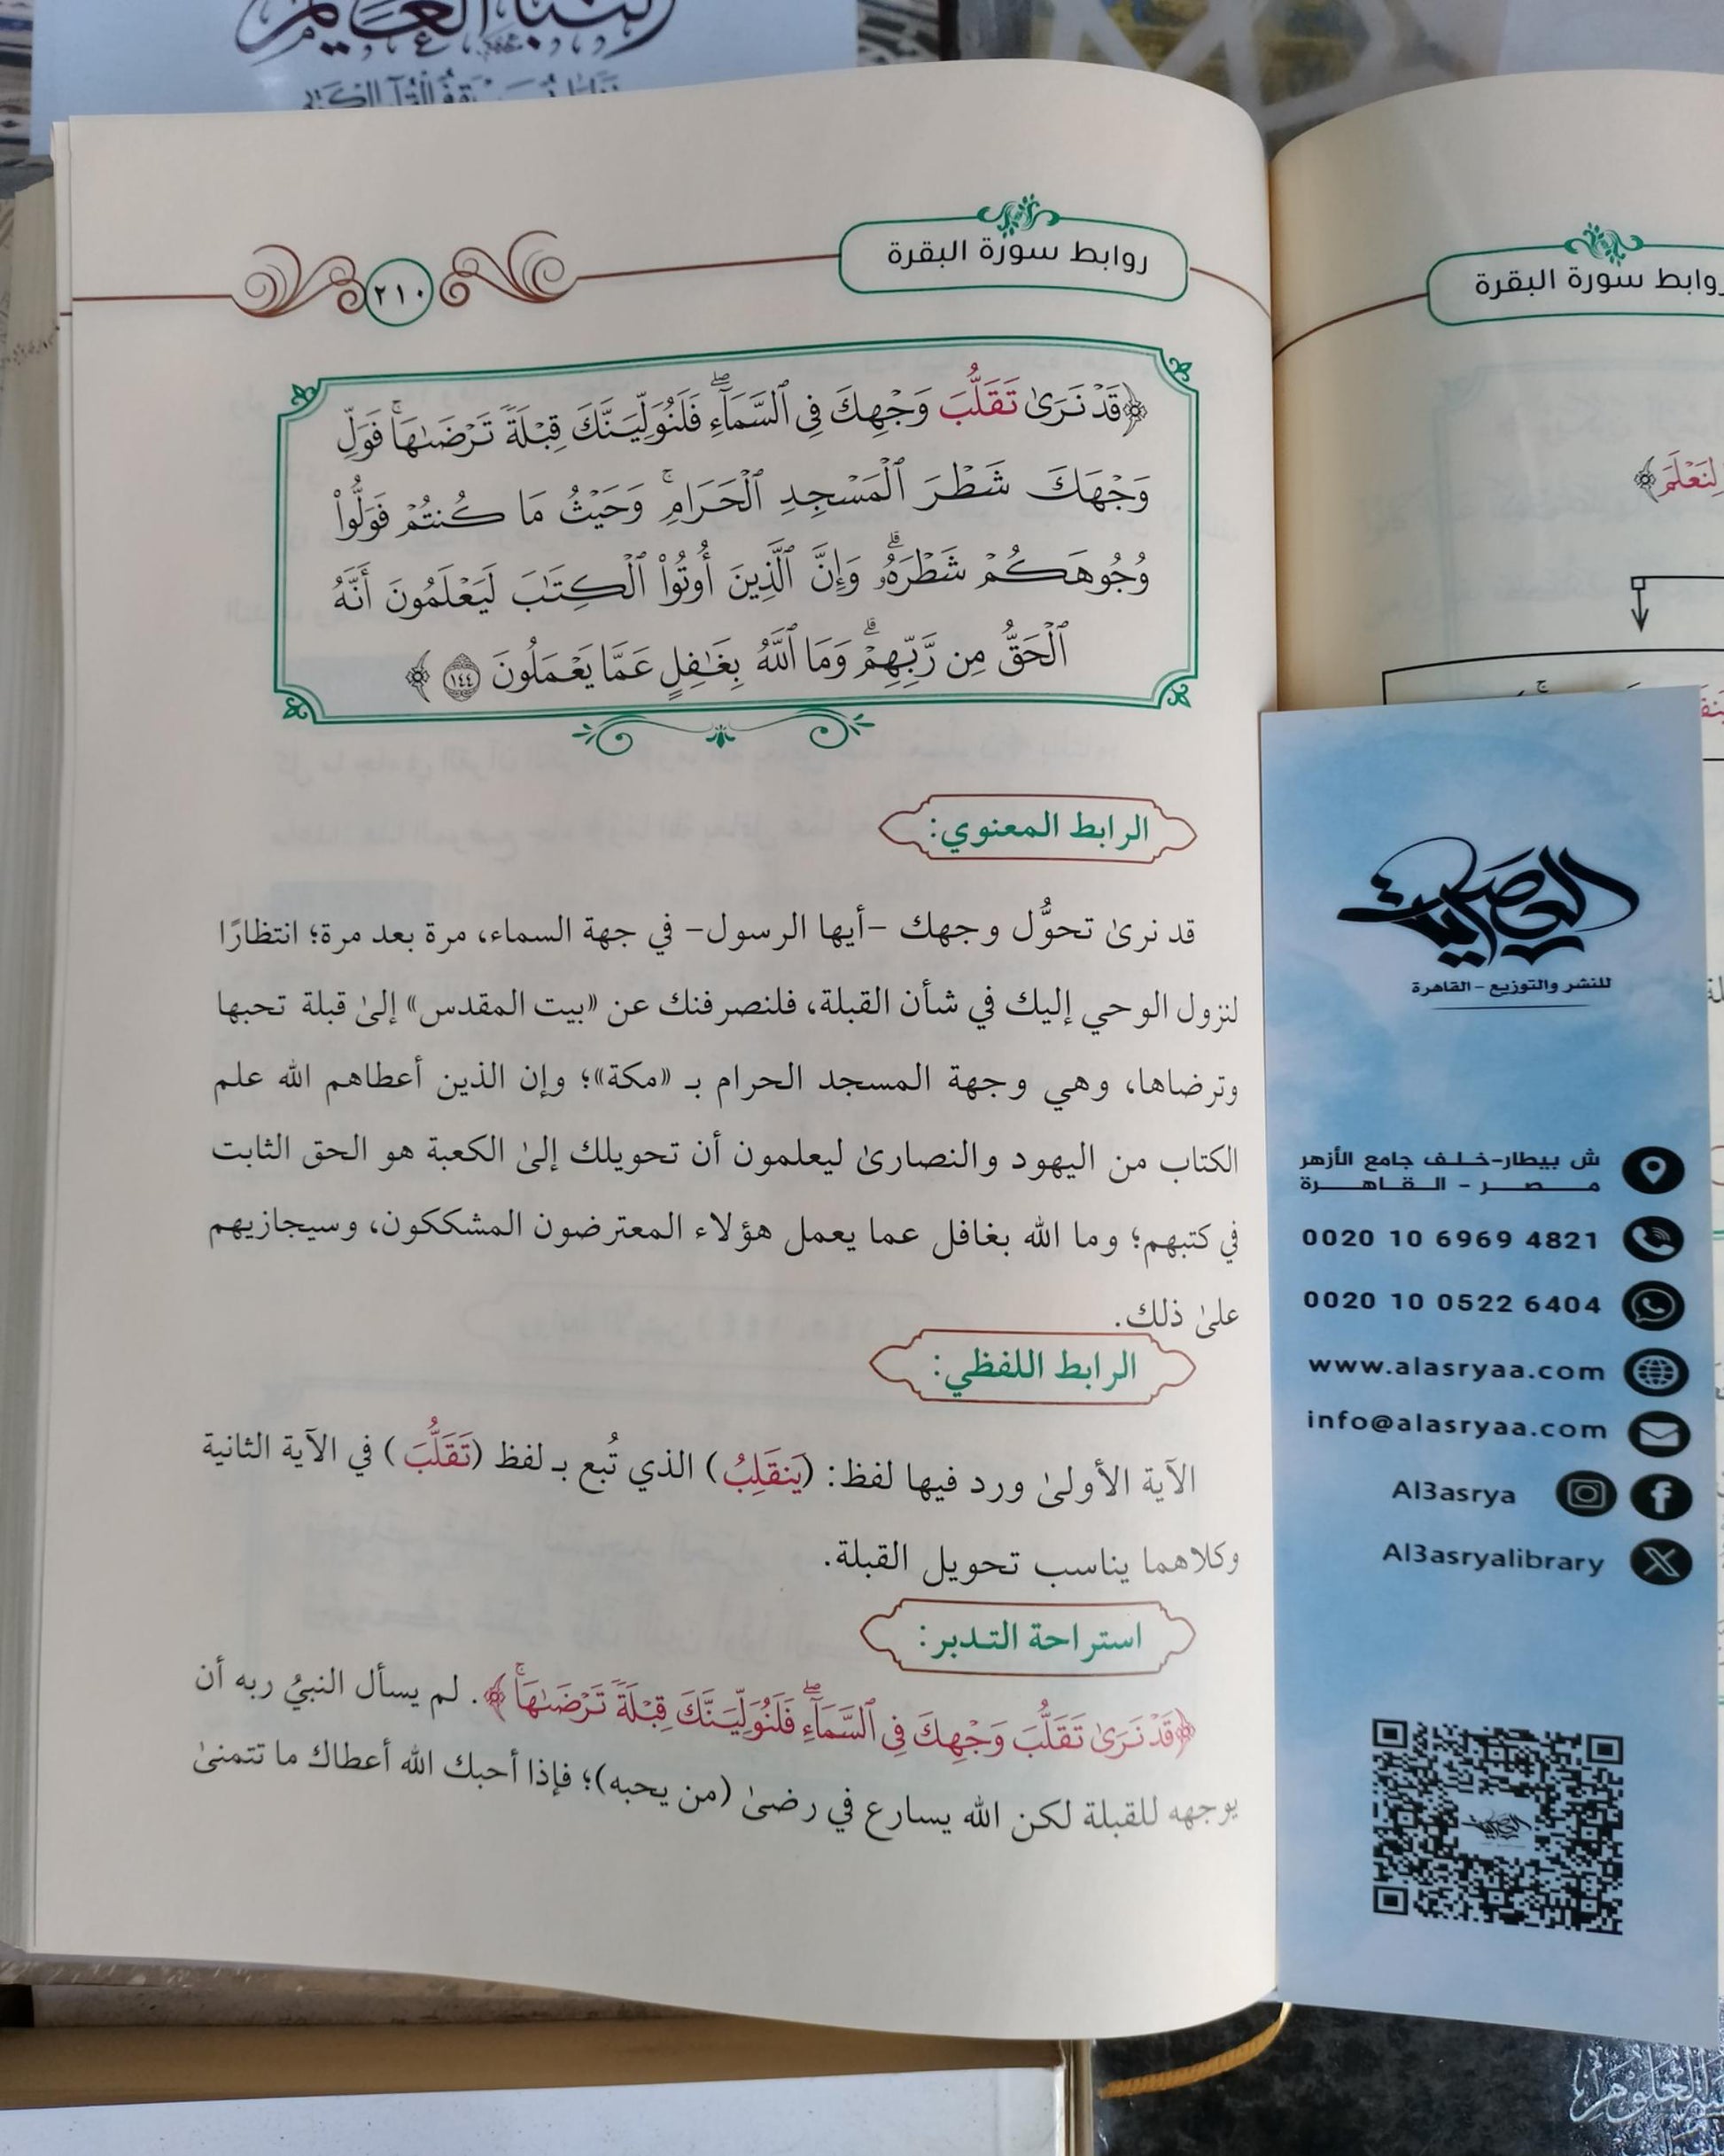 روابط سورة البقرة
٢١٠
﴿قَدْ نَرَىٰ تَقَلُّبَ وَجْهِكَ فِي ٱلسَّمَآءِۖ فَلَنُوَلِّيَنَّكَ قِبْلَةً تَرْضَىٰهَاۚ فَوَلِّ
وَجْهَكَ شَطْرَ ٱلْمَسْجِدِ ٱلْحَرَامِۚ وَحَيْثُ مَا كُنتُمْ فَوَلُّوا۟
وُجُوهَكُمْ شَطْرَهُۥۗ وَإِنَّ ٱلَّذِينَ أُوتُوا۟ ٱلْكِتَٰبَ لَيَعْلَمُونَ أَنَّهُ
ٱلْحَقُّ مِن رَّبِّهِمْۗ وَمَا ٱللَّهُ بِغَٰفِلٍ عَمَّا يَعْمَلُونَ ١٤٤﴾
الرابط المعنوي:
قد نرىٰ تحوُّل وجهك -أيها الرسول- في جهة السماء، مرة بعد مرة؛ انتظارًا
لنزول الوحي إليك في شأن القبلة، فلنصرفنك عن «بيت المقدس» إلىٰ قبلة تحبها
وترضاها، وهي وجهة المسجد الحرام بـ «مكة»؛ وإن الذين أعطاهم الله علم
الكتاب من اليهود والنصارىٰ ليعلمون أن تحويلك إلىٰ الكعبة هو الحق الثابت
في كتبهم؛ وما الله بغافل عما يعمل هؤلاء المعترضون المشككون، وسيجازيهم
علىٰ ذلك.
الرابط اللفظي:
الآية الأولىٰ ورد فيها لفظ: (يَنقَلِبُ) الذي تُبع بـ لفظ (تَقَلُّبَ) في الآية الثانية
وكلاهما يناسب تحويل القبلة.
استراحة التدبر:
﴿قَدْ نَرَىٰ تَقَلُّبَ وَجْهِكَ فِي ٱلسَّمَآءِۖ فَلَنُوَلِّيَنَّكَ قِبْلَةً تَرْضَىٰهَاۚ﴾. لم يسأل النبيُ ربه أن
يوجهه للقبلة لكن الله يسارع في رضىٰ (من يحبه)؛ فإذا أحبك الله أعطاك ما تتمنىٰ
روابط سورة البقرة
لِنَعْلَمَ﴾
العصرية
للنشر والتوزيع - القاهرة
ش بيطار-خلف جامع الأزهر
مصر - القاهرة
0020 10 6969 4821
0020 10 0522 6404
www.alasryaa.com
info@alasryaa.com
Al3asrya
Al3asryalibrary